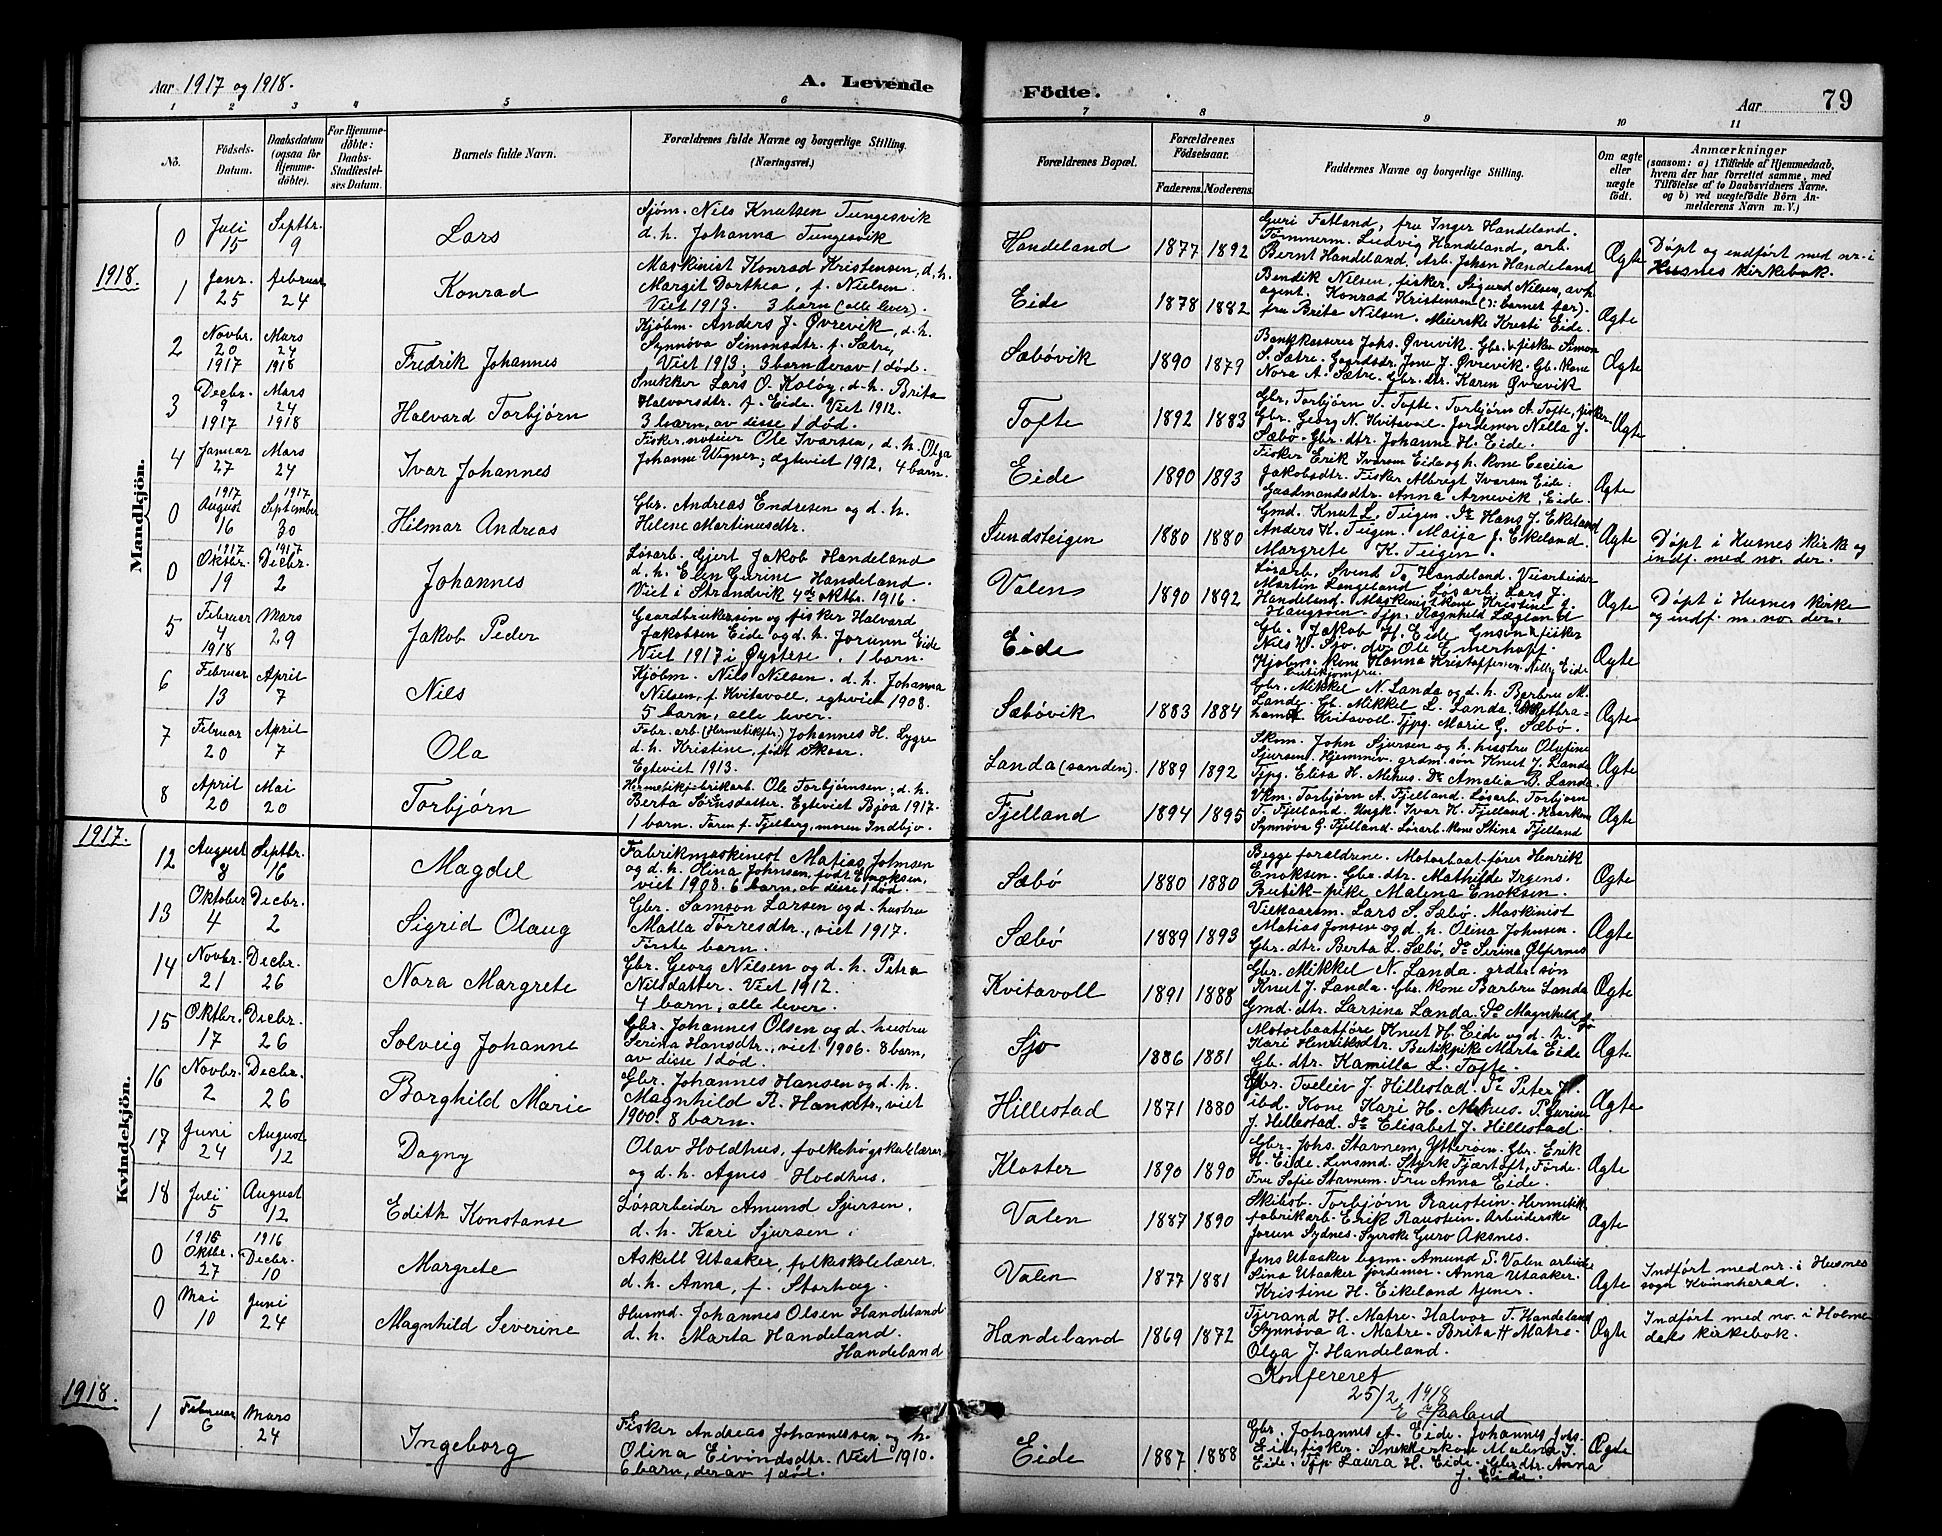 Aar 1917 og 1918.
A. Levende
Födte.
Aar
79
1 2 3 4 5 6 7 8 9 10 11
No.
Födsels-
Datum.
Daabsdatum
(ogsaa for
Hjemme-
döbte).
For Hjemme-
döbte:
Daabs-
Stadfæstel-
ses Datum.
Barnets fulde Navn.
Forældrenes fulde Navne og borgerlige Stilling.
(Næringsvei.)
Forældrenes Bopæl.
Forældrenes
Födselsaar.
Faderens. Moderens.
Faddernes Navne og borgerlige Stilling.
Om ægte
eller
uægte
födt.
Anmærkninger
(saasom: a) i Tilfælde af Hjemmedaab,
hvem der har forrettet samme, med
Tilföielse af to Daabsvidners Navne.
og b) ved uægtefödte Börn An-
melderens Navn m. V.)
Mandkjön.
0 Juli 15 Septbr. 9
Lars
Sjøm. Nils Knutsen Tungesvik
d. h. Johanna Tungesvik
Handeland 1877 1892
Guri Fatland, fru Inger Handeland.
Tömmerm. Ludvig Handeland, arb.
Bernt Handeland, Arb. Johan Handeland
Ægte
Døpt og indført med nr. i
Husnes kirkebok.
1918.
1 Janr. 25 Februar 24
Konrad
Maskinist Konrad Kristensen, d. h.
Margit Dorthea, f. Nielsen.
Viet 1913. 3 barn (alle lever).
Eide 1878 1882
Bendik Nilsen, fisker. Sigurd Nilsen, avh.
agent. Konrad Kristensen (: barnet far).
fru Brita Nilsen. Meierske Kristi Eide.
Ægte
2 Novbr. 20 1917 Mars 24 1918
Fredrik Johannes
Kjøbm. Anders J. Øvrevik, d. h.
Synnöva Simonsdtr. f. Sætre,
Viet 1913; 3 barn derav 1 död.
Sæbövik 1890 1879
Bankkasserer Johs. Øvrevik. Gbr. & fisker Simon
S. Sætre. Gaardsdr. Jone J. Øvrevik. Gb. kone
Nora A. Sætre. Gbr. dtr. Karen Øvrevik
Ægte
3 Decbr. 9 1917 Mars 24 1918
Halvard Torbjørn
Snekker Lars O. Koløy, d. h. Brita
Halvorsdtr. f. Eide. Viet 1912.
3 barn, av disse 1 død.
Tofte 1892 1883
Gbr. Torbjørn T. Tofte. Torbjørn A. Tofte, fisker
Gbr. Georg N. Kvitavoll. Jordemor Nilla J.
Sæbø. Gbr. dtr. Johanne H. Eide.
Ægte
4 Januar 27 Mars 24
Ivar Johannes
Fisker, noteier Ole Ivarsen, d. h. Olga
Johanne Wigner; egteviet 1912. 4 barn.
Eide 1890 1893
Fisker Erik Ivarsen Eide og h. kone Cecilia
Jakobsdtr. Fisker Albrigt Ivarsen Eide.
Gaadmandsdtr. Anna Arnevik, Eide.
Ægte
0 1917 August 16 1917 September 30
Hilmar Andreas
Gbr. Andreas Endresen og d. h.
Helene Martinusdtr.
Sundsteigen 1880 1880
Gmd. Knut L. Teigen. Do Hans J. Ekeland
Anders K. Teigen. Maija J. Ekeland.
Margrete K. Teigen.
Ægte
Døpt i Husnes kirke og
indf. med no. der.
0 1917 Oktbr. 19 1917 Decbr. 2
Johannes
Løsarb. Gjert Jakob Handeland
d. h. Elen Gurine Handeland.
Viet i Strandvik 4de oktbr. 1916.
Valen 1890 1892
Løsarb. Svend T. Handeland. Veiarbeider
Martin Langeland. Løsarb. Lars J.
Handeland. Maskinistkone Kristine J.
Haugsven. Tjp. Ragnhild Lægland
Ægte
Døpt i Husnes kirke
og indf. m. no. der.
5 Februar 4 1918 Mars 29
Jakob Peder
Gaardbrukersön og fisker Halvard
Jakobsen Eide og d. h. Jorunn Eide
Viet 1917 i Øystese. 1 barn.
Eide
Gb. Jakob H. Eide Gnson & fisker
Nils V. Sjo. do Ole Emerhoff.
Kjøbm. kone Hanna Kristoffersen. Nelly Eide
butikjomfru.
Ægte
6 Februar 13 April 7
Nils
Kjöbm. Nils Nilsen. d. h. Johanna
Nilsen, f. Kvitavoll, egteviet 1908.
5 barn, alle lever.
Sæbövik 1883 1884
Gbr. Mikkel N. Landa og d. h. Barbru M.
Landa. Gb. Mikkel L. Landa.
Kvitavoll. Tjpg. Marie G. Sæbö.
Ægte
7 Februar 20 April 7
Ola
Fabr. arb. (Hermetikftr.) Johannes H. Lygre
d. h. Kristine, født Skaar.
Egteviet 1913.
Landa (sanden). 1889 1892
Skom. John Sjursen og h. hustru Olufine
Sjursen. Hjemmev. grdm. søn Knut J. Landa
Tjpg. Elisa H. Mehus. Do Amalia B. Landa.
Ægte
8 April 20 Mai 20
Torbjørn
Hermetikfabrikarb. Ole Torbjørnsen; d. h.
Berta Sörensdatter. Egteviet Bjoa 1917.
1 barn. Faren f. Fjelberg, moren Indbjo.
Fjelland 1894 1895
Vkm. Torbjørn A. Fjelland. Løsarb. Torbjørn
T. Fjelland. Ungk. Ivar K. Fjelland. Kaarkone
Synnöva G. Fjelland. Løsarb. kone Stina Fjelland
Ægte
1917.
Kvindekjön.
12 August 8 Septbr. 16
Magdel
Fabrikmaskinist Matias Johnsen
og d. h. Olina Johnsen, født Enoksen,
viet 1908. 6 barn, av disse 1 död.
Sæbö 1880 1880
Begge forældrene. Motorbaat-fører Henrik
Enoksen. Gbr. dtr. Mathilde Irgens.
Butik-pike Malena Enoksen.
Ægte
13 Oktober 4 Decbr. 2
Sigrid Olaug
Gbr. Samson Larsen og d. hustru
Malla Torresdtr., viet 1917.
Første barn.
Sæbö 1889 1893
Vilkaarsm. Lars S. Sæbø. Maskinist
Matias Jonsen og d. h. Olina Johnsen.
Gbr. dtr. Berta L. Sæbö, Do Serina Olfernes
Ægte
14 Novbr. 21 Decbr. 26
Nora Margrete
Gbr. Georg Nilsen og d. h. Petra
Nilsdatter. Viet 1912.
4 barn, alle lever.
Kvitavoll 1891 1888
Gbr. Mikkel N. Landa. grdbr. søn
Knut J. Landa. Gbr. kone Barbru Landa
Gmd. dtr. Larsina Landa. Do Magnhild Sjo
Ægte
15 Oktbr. 17 Decbr. 26
Solveig Johanne
Gbr. Johannes Olsen og d. hustru
Serina Hansdtr., viet 1906. 8 barn,
av disse 1 død.
Sjo 1886 1881
Motorbaatfører Knut H. Eide og d. h.
Kari Henriksdtr. Butikpike Marta Eide
Gb. dtr. Kamilla L. Tofte.
Ægte
16 Novbr. 2 Decbr. 26
Borghild Marie
Gbr. Johannes Hansen og d. h.
Magnhild R. Hansdtr., viet
1900. 8 barn.
Hillestad 1871 1880
Gbr. Tveleiv J. Hillestad. Do Peter H.
ibd. Kone Kari H. Mehus. P. Gurine
J. Hillestad. Do Elisabet J. Hillestad.
Ægte
17 Juni 24 August 12
Dagny
Olav Holdhus, folkehøgskolelærar
og d. h. Agnes Holdhus.
Kloster 1890 1890
Gbr. Johs. Stavnem, Ytterøin. Gbr. Erik
H. Eide. Lensmd. Styrk Fjærtoft, Førde.
Fru Sofie Stavnem. Fru Anna Eide.
Ægte
18 Juli 5 August 12
Edith Konstanse
Løsarbeider Amund Sjursen,
d. h. Kari Sjursen.
Valen 1887 1890
Skibsb. Torbjørn Raustein. Hermetik-
fabrikarb. Erik Raustein. Arbeiderske
Jorun Sydnes. Syerske Guro Aksnes.
Ægte
0 1916 Oktbr. 27 1916 Decbr. 10
Margrete
Askell Utaaker, folkeskolelærer,
d. h. Anna, f. Storhaug.
Valen 1877 1881
Jens Utaaker lgsm. Amund S. Valen arbeider
Sina Utaaker jordemor. Anna Utaaker.
Kristine H. Eikeland tjener.
Ægte
Indført med nr. i Husnes
sogn Kvinnherad.
0 Mai 10 Juni 24
Magnhild Severine
Husmd. Johannes Olsen Handeland
d. h. Marta Handeland.
Handeland
Handeland 1869 1872
Tjerand H. Matre. Halvor T. Handeland
Synnøva A. Matre. Brita H Matre.
Olga J. Handeland.
Ægte
Indført med no. i Holme-
dals kirkebok.
Konfereret
25/2 1918
E Haaland
1918.
1 Februar 6 Mars 24
Ingeborg
Fisker Andreas Johannessen og h.
Olina Eivindsdtr. Viet 1910.
6 barn, derav 1 død.
Eide 1887 1888
Gbr. Johannes A. Eide. Johannes Johs.
Eide, fisker. Snekkerkone Malina J.
Eide. Tjp. Laura H. Eide. Gbr dtr. Anna
J. Eide.
Ægte